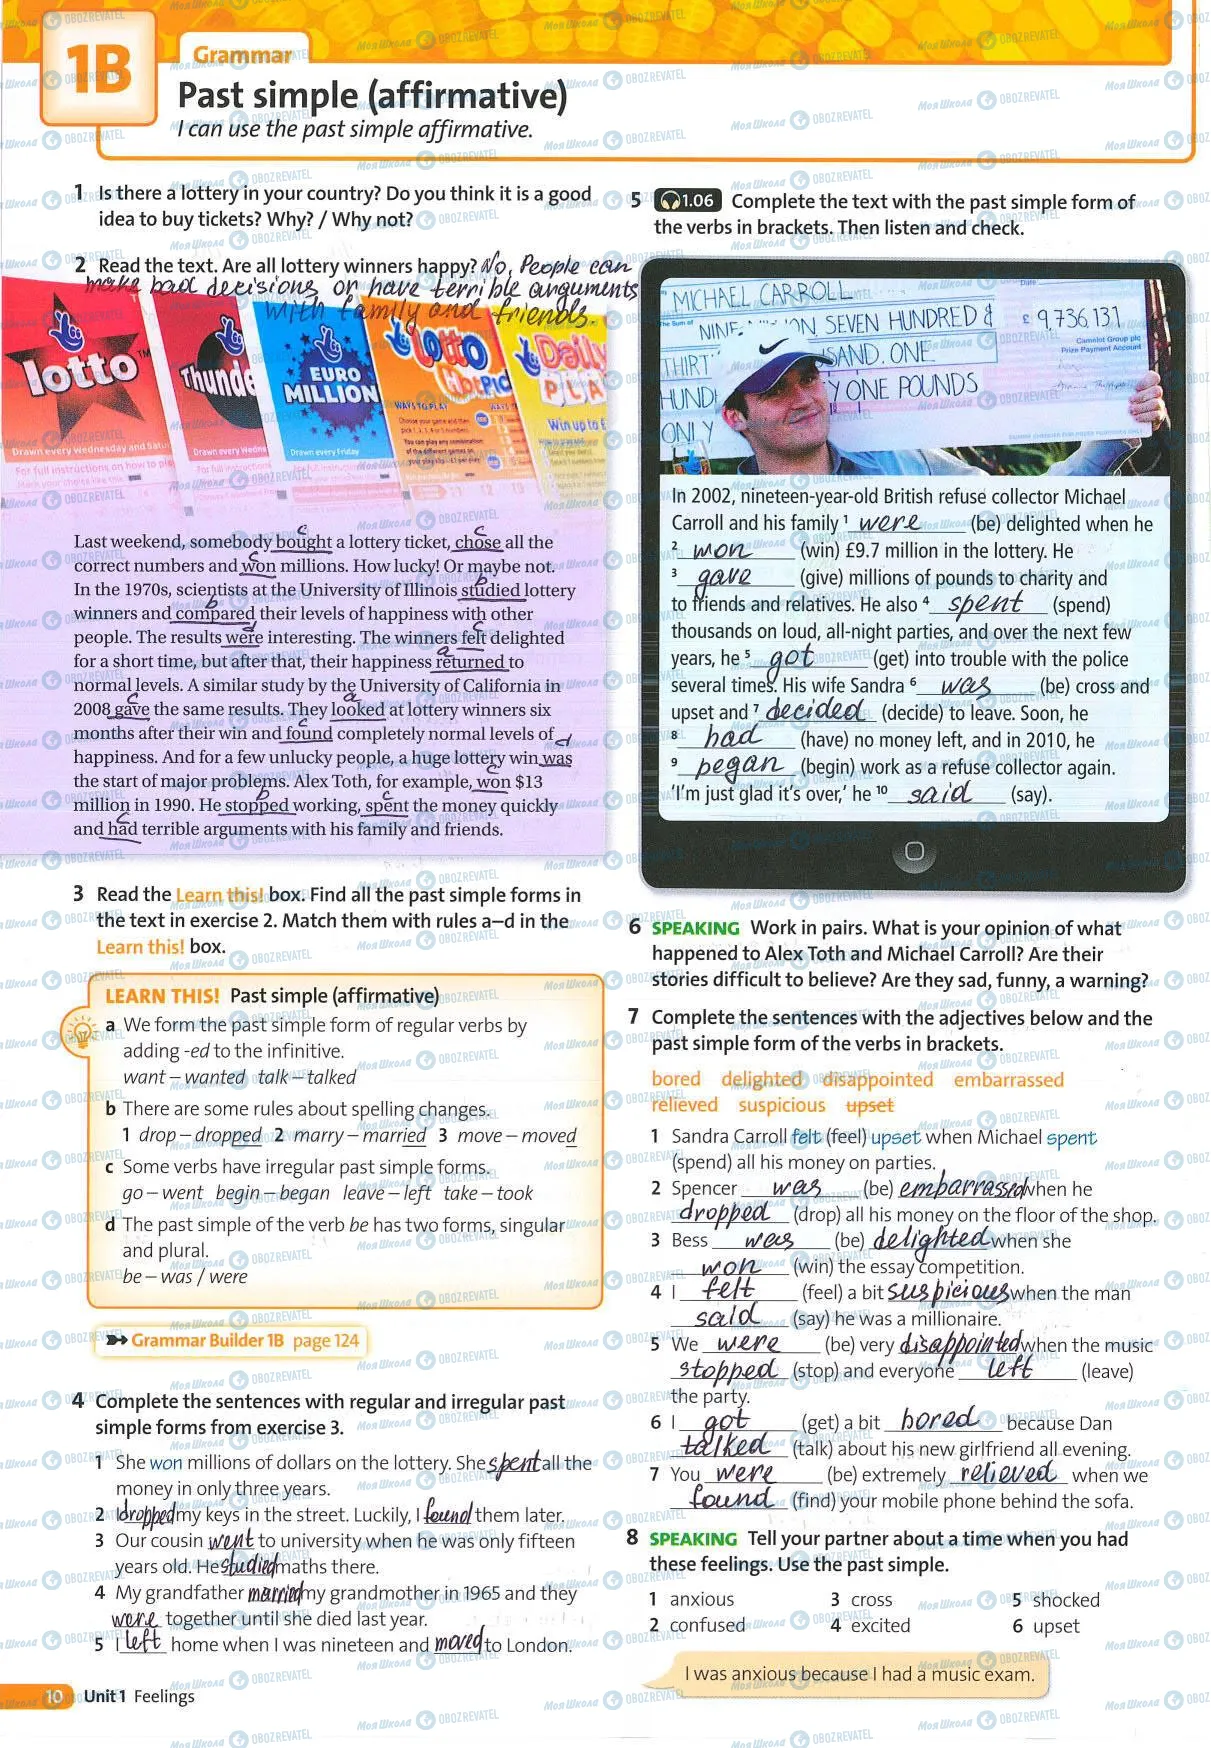 1B
Grammar
Past simple (affirmative)
I can use the past simple affirmative.
1 Is there a lottery in your country? Do you think it is a good
idea to buy tickets? Why? / Why not?
2 Read the text. Are all lottery winners happy? No, People can
make bad decisions or have terrible arguments
with family and friends.
lotto
Drawn every Wednesday and Satu
Thunde
EURO
MILLION
Drawn every Friday
Lotto
HotPic
WAYS TO PLAY
Daily
PLA
Win up to £
Last weekend, somebody bought a lottery ticket, chose all the
correct numbers and won millions. How lucky! Or maybe not.
In the 1970s, scientists at the University of Illinois studied lottery
winners and compared their levels of happiness with other
people. The results were interesting. The winners felt delighted
for a short time, but after that, their happiness returned to
normal levels. A similar study by the University of California in
2008 gave the same results. They looked at lottery winners six
months after their win and found completely normal levels of
happiness. And for a few unlucky people, a huge lottery win was
the start of major problems. Alex Toth, for example, won $13
million in 1990. He stopped working, spent the money quickly
and had terrible arguments with his family and friends.
3 Read the Learn this! box. Find all the past simple forms in
the text in exercise 2. Match them with rules a–d in the
Learn this! box.
LEARN THIS! Past simple (affirmative)
a We form the past simple form of regular verbs by
adding -ed to the infinitive.
want – wanted talk – talked
b There are some rules about spelling changes.
1 drop – dropped 2 marry – married 3 move – moved
c Some verbs have irregular past simple forms.
go – went begin – began leave – left take – took
d The past simple of the verb be has two forms, singular
and plural.
be – was / were
Grammar Builder 1B page 124
4 Complete the sentences with regular and irregular past
simple forms from exercise 3.
1 She won millions of dollars on the lottery. She spent all the
money in only three years.
2 I dropped my keys in the street. Luckily, I found them later.
3 Our cousin went to university when he was only fifteen
years old. He studied maths there.
4 My grandfather married my grandmother in 1965 and they
were together until she died last year.
5 I left home when I was nineteen and moved to London.
10 Unit 1 Feelings
5 1.06 Complete the text with the past simple form of
the verbs in brackets. Then listen and check.
MICHAEL CARROLL
SEVEN HUNDRED &
£ 9,736,131
Camelot Group plc
Prize Payment Account
ONE POUNDS
ONLY
In 2002, nineteen-year-old British refuse collector Michael
Carroll and his family 1 were (be) delighted when he
2 won (win) £9.7 million in the lottery. He
3 gave (give) millions of pounds to charity and
to friends and relatives. He also 4 spent (spend)
thousands on loud, all-night parties, and over the next few
years, he 5 got (get) into trouble with the police
several times. His wife Sandra 6 was (be) cross and
upset and 7 decided (decide) to leave. Soon, he
8 had (have) no money left, and in 2010, he
9 began (begin) work as a refuse collector again.
'I'm just glad it's over,' he 10 said (say).
6 SPEAKING Work in pairs. What is your opinion of what
happened to Alex Toth and Michael Carroll? Are their
stories difficult to believe? Are they sad, funny, a warning?
7 Complete the sentences with the adjectives below and the
past simple form of the verbs in brackets.
bored delighted disappointed embarrassed
relieved suspicious upset
1 Sandra Carroll felt (feel) upset when Michael spent
(spend) all his money on parties.
2 Spencer was (be) embarrassed when he
dropped (drop) all his money on the floor of the shop.
3 Bess was (be) delighted when she
won (win) the essay competition.
4 I felt (feel) a bit suspicious when the man
said (say) he was a millionaire.
5 We were (be) very disappointed when the music
stopped (stop) and everyone left (leave)
the party.
6 I got (get) a bit bored because Dan
talked (talk) about his new girlfriend all evening.
7 You were (be) extremely relieved when we
found (find) your mobile phone behind the sofa.
8 SPEAKING Tell your partner about a time when you had
these feelings. Use the past simple.
1 anxious 3 cross 5 shocked
2 confused 4 excited 6 upset
I was anxious because I had a music exam.
Моя Школа OBOZREVATEL